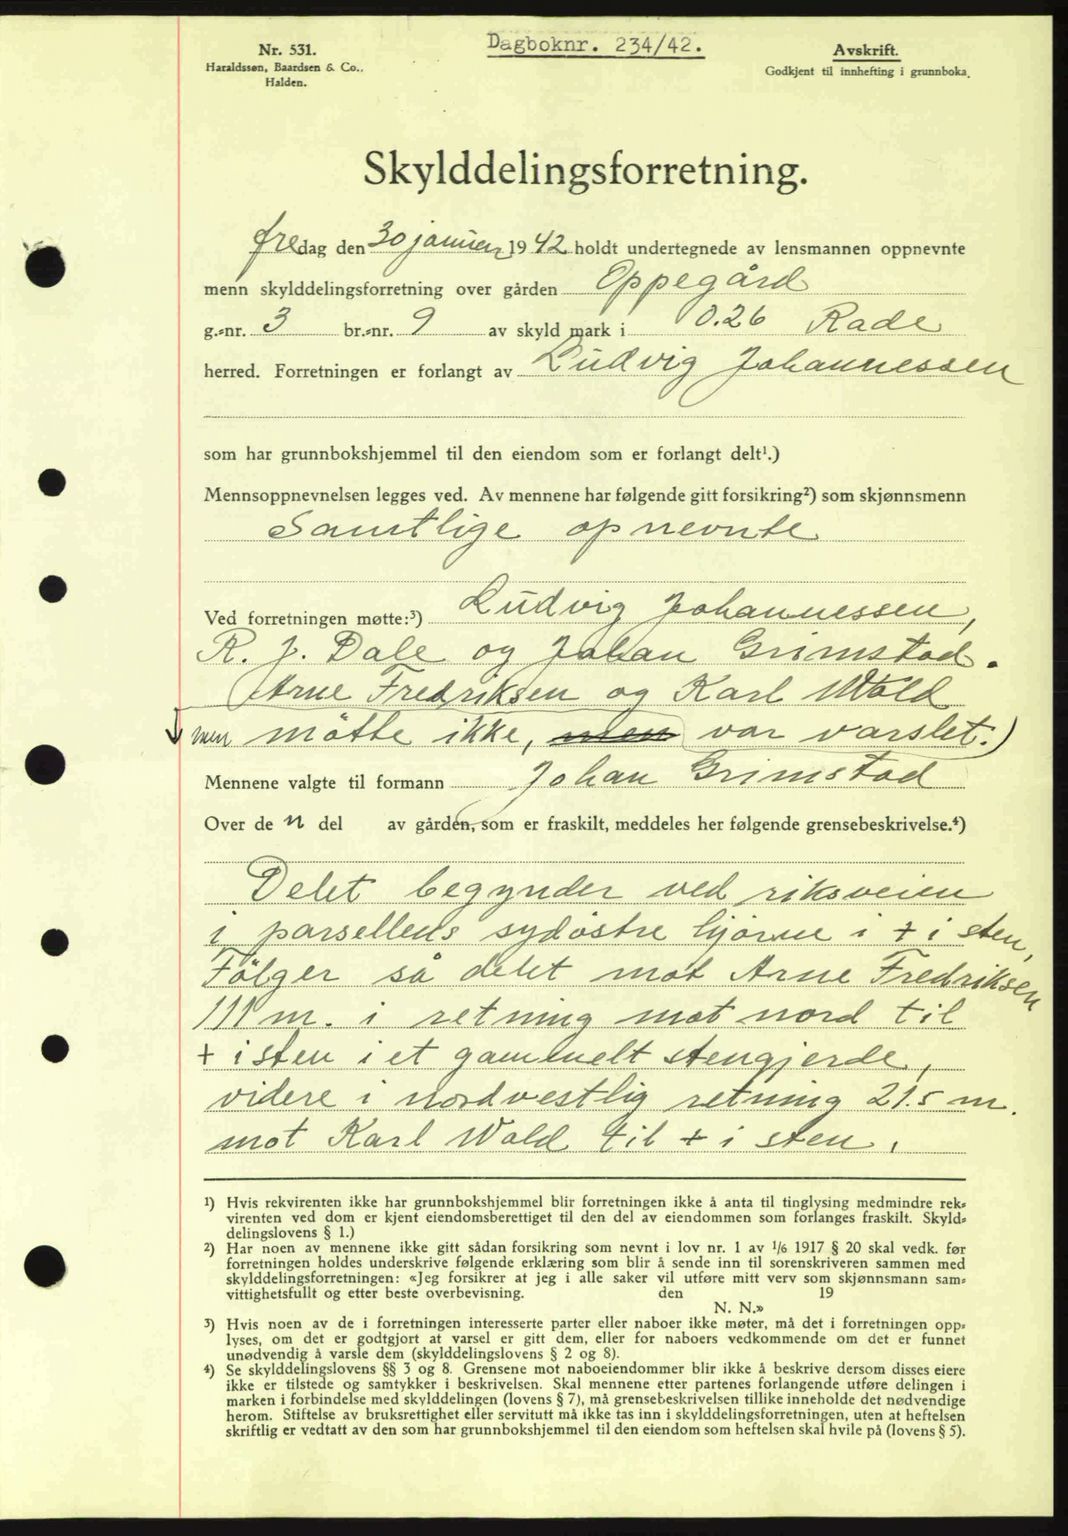 Nr. 531.
Haraldssøn, Baardsen & Co..
Halden.
Dagboknr. 234/42.
Avskrift.
Godkjent til innhefting i grunnboka.
Skylddelingsforretning.
fredag den 30 januar 1942 holdt undertegnede av lensmannen oppnevnte
menn skylddelingsforretning over gården Oppegård
g.-nr. 3 br.-nr. 9 av skyld mark i 0.26 Rade
herred. Forretningen er forlangt av Ludvig Johannessen
som har grunnbokshjemmel til den eiendom som er forlangt delt¹.)
Mennsoppnevnelsen legges ved. Av mennene har følgende gitt forsikring²) som skjønnsmenn
Samtlige opnevnte
Ved forretningen møtte:³) Ludvig Johannessen,
R. J. Dale og Johan Grimstad.
Arne Fredriksen og Karl Wold
men møtte ikke, men var varslet.)
Mennene valgte til formann Johan Grimstad
Over de n del av gården, som er fraskilt, meddeles her følgende grensebeskrivelse.⁴)
Delet begynder ved riksveien
i parsellens sydøstre hjørne i + i sten,
Følger så delet mot Arne Fredriksen
111 m. i retning mot nord til
+ i sten i et gammelt stengjerde,
videre i nordvestlig retning 21.5 m.
mot Karl Wold til + i sten.
¹) Hvis rekvirenten ikke har grunnbokshjemmel blir forretningen ikke å anta til tinglysing medmindre rek-
virenten ved dom er kjent eiendomsberettiget til den del av eiendommen som forlanges fraskilt. Skyld-
delingslovens § 1.)
²) Har noen av mennene ikke gitt sådan forsikring som nevnt i lov nr. 1 av 1/6 1917 § 20 skal vedk. før
forretningen holdes underskrive følgende erklæring som blir å sende inn til sorenskriveren sammen med
skylddelingsforretningen: «Jeg forsikrer at jeg i alle saker vil utføre mitt verv som skjønnsmann sam-
vittighetsfullt og etter beste overbevisning. den 19
N. N.»
³) Hvis noen av de i forretningen interesserte parter eller naboer ikke møter, må det i forretningen opp-
lyses, om det er godtgjort at varsel er gitt dem, eller for naboers vedkommende om det er funnet
unødvendig å varsle dem (skylddelingslovens § 2 og 8).
⁴) Se skylddelingslovens §§ 3 og 8. Grensene mot naboeiendommer blir ikke å beskrive dersom disses eiere
ikke er tilstede og samtykker i beskrivelsen. Skal mennene etter partenes forlangende utføre delingen i
marken i forbindelse med skylddelingen (lovens § 7), må grensebeskrivelsen tillike inneholde det nødvendige
herom. Stiftelse av bruksrettighet eller servitutt må ikke tas inn i skylddelingsforretningen, uten at heftelsen
skriftlig er vedtatt av den som har grunnbokshjemmel til den eiendom som heftelsen skal hvile på (lovens § 5).